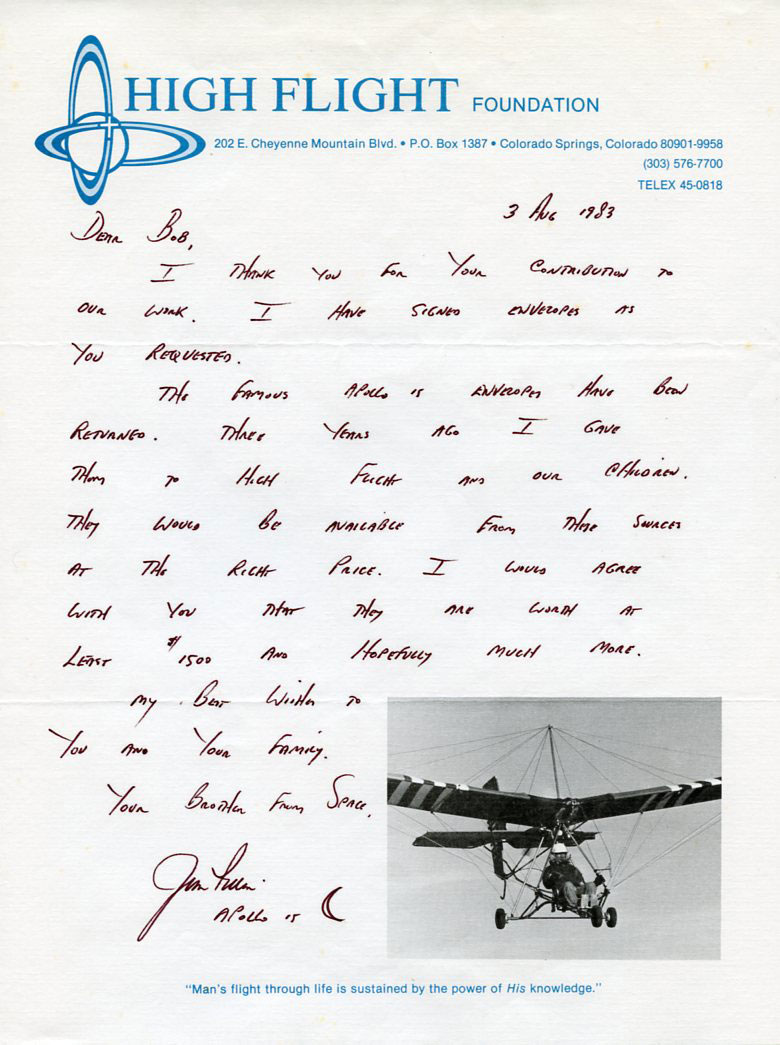 HIGH FLIGHT FOUNDATION
202 E. Cheyenne Mountain Blvd. • P.O. Box 1387 • Colorado Springs, Colorado 80901-9958
(303) 576-7700
TELEX 45-0818
3 Aug 1983
Dear Bob,
I thank you for your contribution to
our work. I have signed envelopes as
you requested.
The famous Apollo 15 envelopes have been
returned. Three years ago I gave
them to High Flight and our children.
They would be available from these sources
at the right price. I would agree
with you that they are worth at
least $1500 and hopefully much more.
My best wishes to
you and your family.
Your brother from space,
Jim Irwin
Apollo 15
"Man's flight through life is sustained by the power of His knowledge."